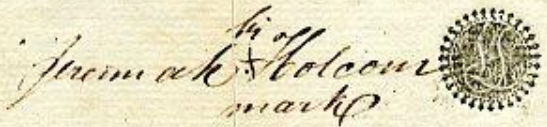 his
Jeremiah X Holcom
mark